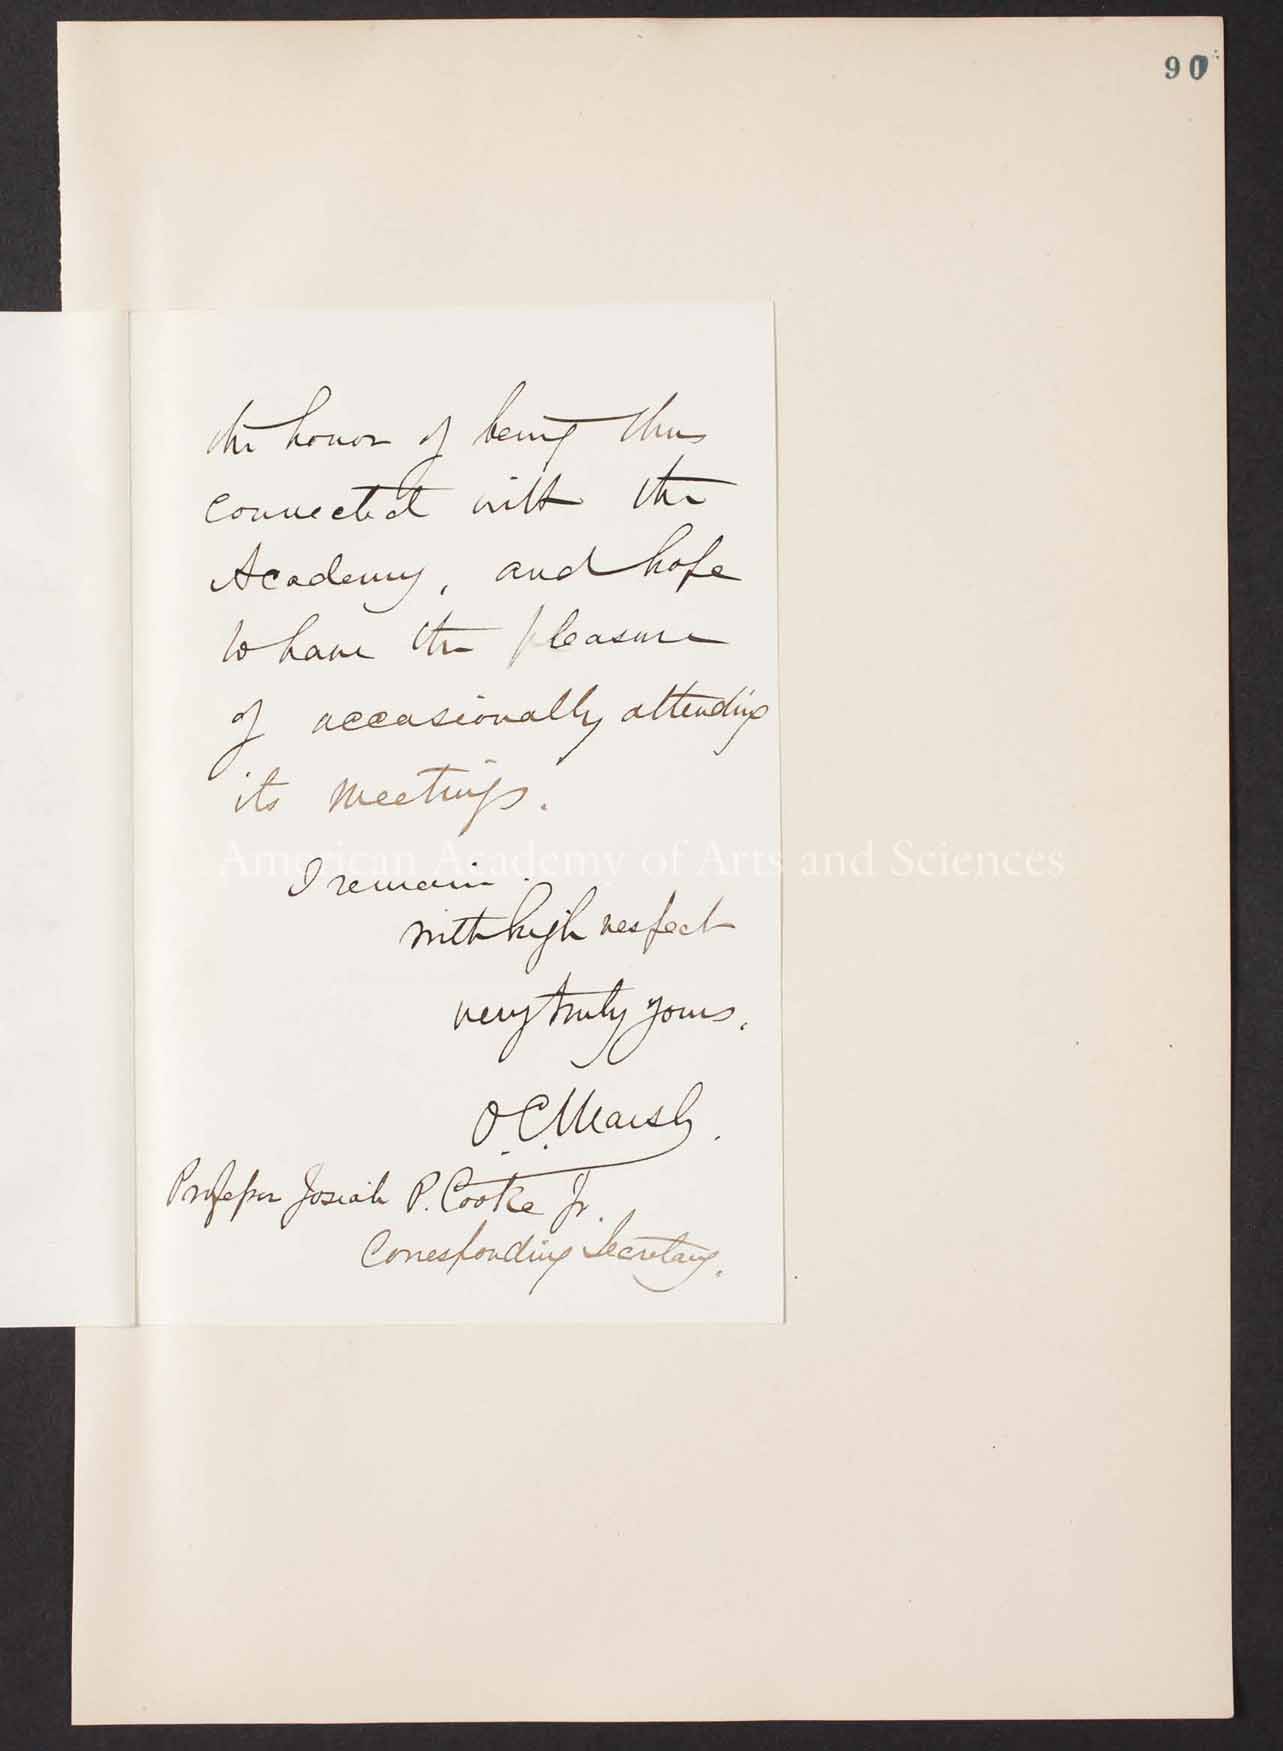 90
the honor of being thus
connected with the
Academy, and hope
to have the pleasure
of occasionally attending
its meetings.
American Academy of Arts and Sciences
I remain
with high respect
very truly yours,
O. C. Marsh.
Professor Josiah P. Cooke Jr.
Corresponding Secretary.